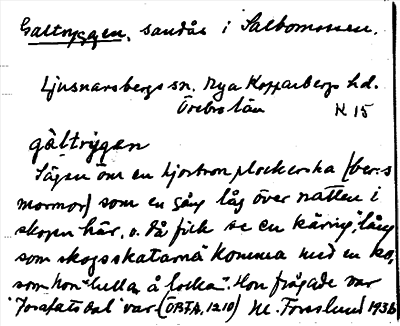 Galtryggen, sandås i Salbomossen.
Ljusnarsbergs sn. Nya Kopparbergs hd.
Örebro län
N 15
galtrýgen
Sägen om en hjortronplockerska (ber:s
mormor) som en gång låg över natten i
skogen här, o. då fick se en käring "lång
som skogsskatarna" komma med en ko,
som hon "hulla å locka". Hon frågade var
"Josafats dal" var. (ORTA, 1210) Hc. Forsslund 1936